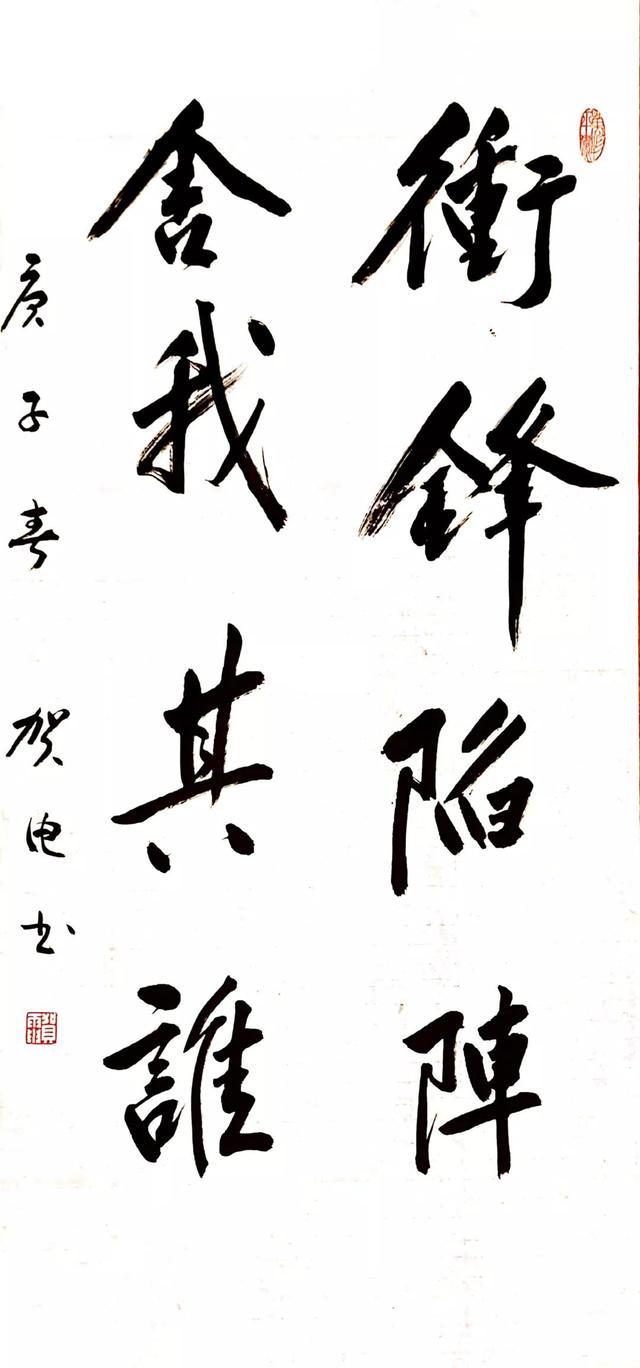 衝鋒陷陣
舍我其誰
庚子春 賀电书